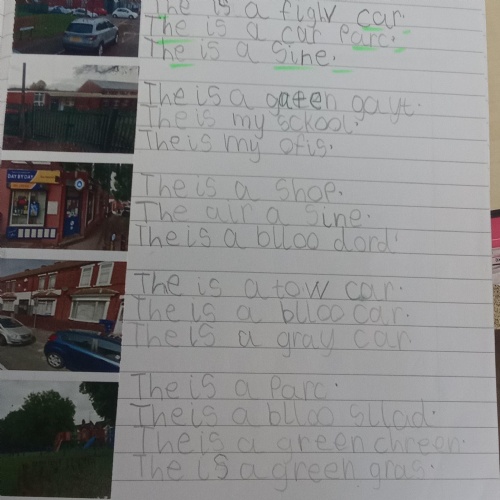 The is a figlv car.
The is a car Parc.
The is a Sine.
The is a gateen gayt.
The is my school.
The is my ofis.
DAY BY DAY
The is a Shop.
The alr a Sine.
The is a blloo dord.
The is a tow car.
The is a blloo car.
The is a gray car
The is a Parc.
The is a blloo sllad.
The is a green chreen.
The is a green gras.